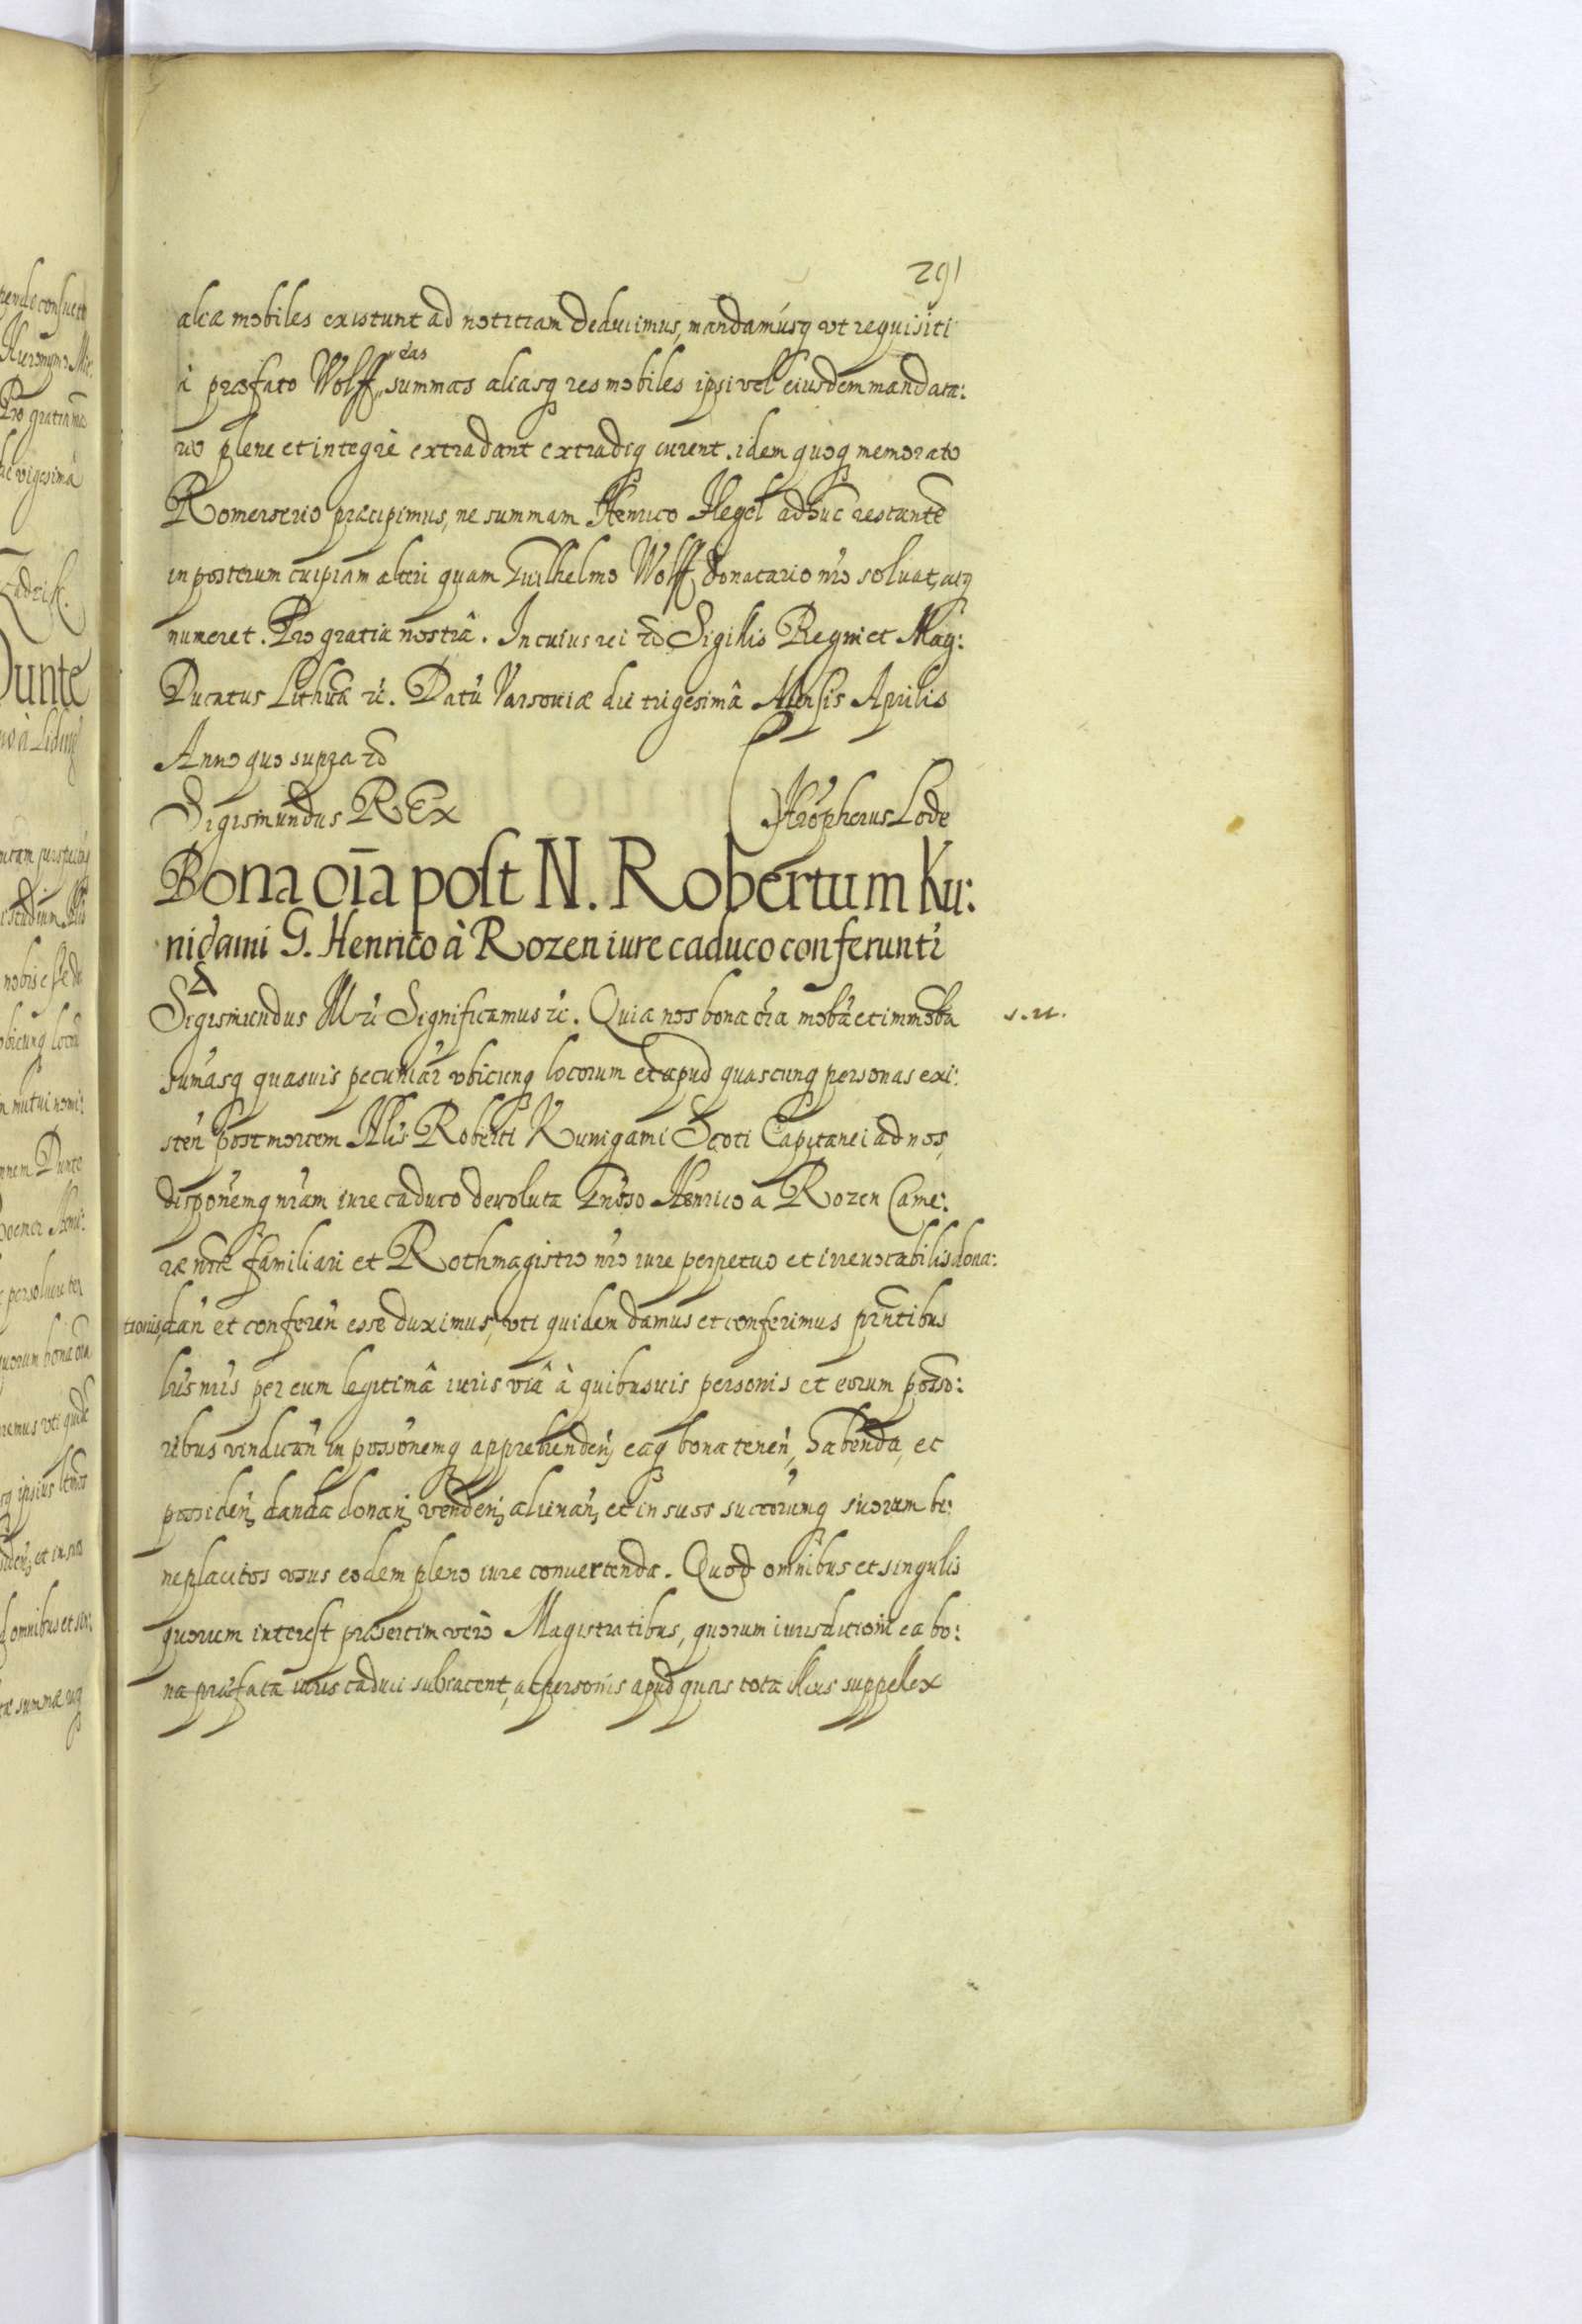 291
aliæ mobiles existunt ad notitiam deducimus, mandamúsq vt requisiti
à præfato Wolff eas summas aliasq res mobiles ipsi vel eiusdem mandata:
rio plene et integrè extradant extradiq curent. idem quoq memorato
Romerserio præcipimus, ne summam Henrico Flegel adhuc restantē
in posterum cuipiam alteri quam Guilhelmo Wolff donatario nr̃o soluat, atq
numeret. Pro gratia nostrâ. In cuius rei Sigillis Regni et Mag:
Ducatus Lithuã. Datũ Varsouiæ die trigesimâ Mensis Aprilis
Anno quo supra
Sigismundus REx Lode
Bona oĩa post N. Robertum Ku:
nigami G. Henrico à Rozen iure caduco conferuntr̃
Sigismundus III Significamus. Quia nos bona oĩa mobilia et immobilia s. n.
sum̃asq quasuis pecuniar̃ vbicunq locorum et apud quascunq personas exi:
sten̄ post mortem Nlis Roberti Kunigami Scoti Capitanei ad nos,
dispõnemq nr̃am iure caduco deuoluta Gnõso Henrico a Rozen Came:
ræ nr̃æ familiari et Rothmagistro nr̃o iure perpetuo et irreuocabilis dona:
tionis, dan̄ et conferen̄ esse duximus, vti quidem damus et conferimus pñtibus
lr̃is nr̃is per eum legitimâ iuris viâ à quibusuis personis et eorum posso:
ribus vindican̄ in possõnemq apprehenden̄, eaq bona tenen̄, habenda, et
possiden̄, danda donan̄, venden̄, alienan̄, et in suos succorumq suorum be:
neplacitos vsus eodem pleno iure conuertenda. Quod omnibus et singulis
quorum interest præsertim verò Magistratibus, quorum iurisdictioni ea bo:
na præfata iuris caduci subiacent, ac personis apud quas tota illius suppellex